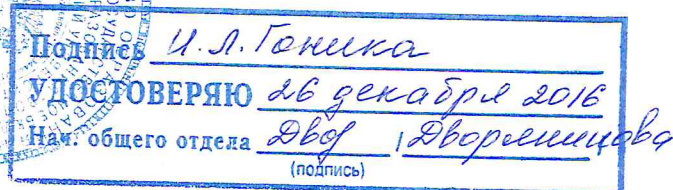 Подпись И.Л. Гоника
УДОСТОВЕРЯЮ 26 декабря 2016
Нач. общего отдела Двор /
(подпись)